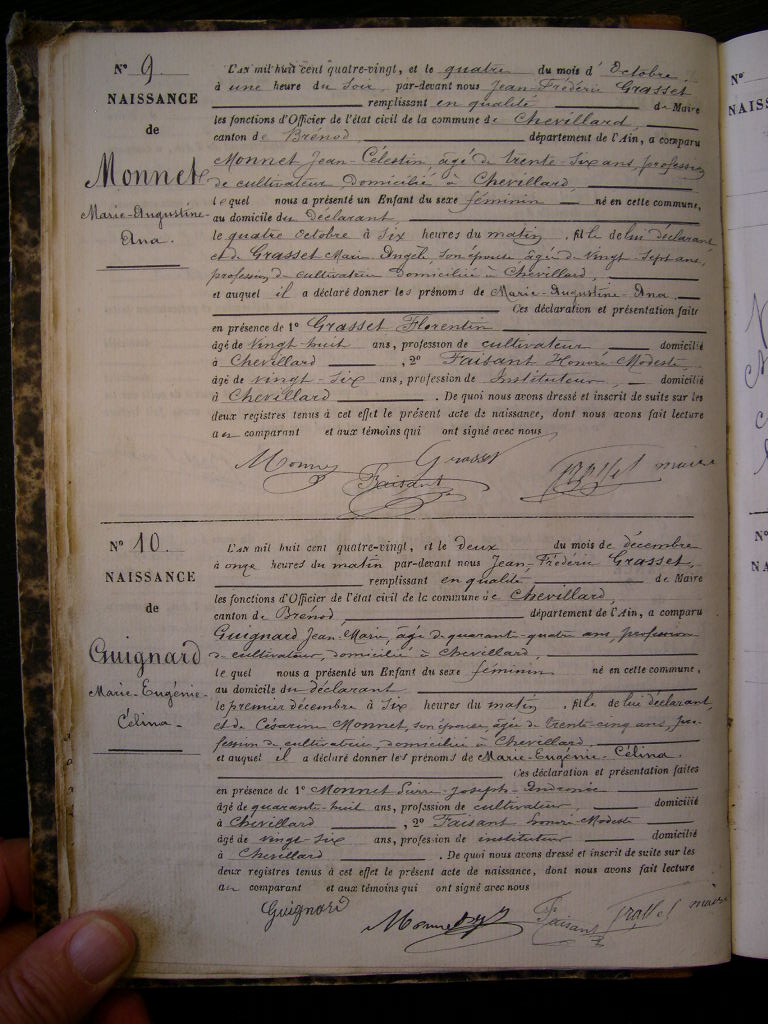 N° 9.
NAISSANCE
de
Monnet
Marie-Augustine-
Ana.
L'AN mil huit cent quatre-vingt, et le quatre du mois d'Octobre
à une heure du Soir, par-devant nous Jean-Frédéric Grasset
remplissant en qualité de Maire
les fonctions d'Officier de l'état civil de la commune de Chevillard,
canton de Brénod, département de l'Ain, a comparu
Monnet Jean-Célestin, âgé de trente-six ans, profession
de cultivateur, domicilié à Chevillard,
lequel nous a présenté un Enfant du sexe féminin né en cette commune,
au domicile du déclarant,
le quatre Octobre à Six heures du matin, fille de lui déclarant
et de Grasset Marie Angèle, son épouse, âgée de vingt-sept ans,
profession de cultivateur domiciliée à Chevillard,
et auquel il a déclaré donner les prénoms de Marie-Augustine-Ana.
Ces déclaration et présentation faites
en présence de 1° Grasset Florentin
âgé de vingt-huit ans, profession de cultivateur domicilié
à Chevillard, 2° Faisant Honoré-Modeste,
âgé de vingt-six ans, profession de Instituteur, domicilié
à Chevillard. De quoi nous avons dressé et inscrit de suite sur les
deux registres tenus à cet effet le présent acte de naissance, dont nous avons fait lecture
au comparant et aux témoins qui ont signé avec nous
Monnet Grasset
Faisant Grasset maire
N° 10.
NAISSANCE
de
Guignard
Marie-Eugénie-
Célina-
L'AN mil huit cent quatre-vingt, et le Deux du mois de décembre
à onze heures du matin par-devant nous Jean-Frédéric Grasset,
remplissant en qualité de Maire
les fonctions d'Officier de l'état civil de la commune de Chevillard,
canton de Brénod, département de l'Ain, a comparu
Guignard Jean-Marie, âgé de quarante-quatre ans, profession
de cultivateur, domicilié à Chevillard,
lequel nous a présenté un Enfant du sexe féminin né en cette commune,
au domicile du déclarant
le premier décembre à Six heures du matin, fille de lui déclarant,
et de Césarine Monnet, son épouse, âgée de trente-cinq ans, pro-
fession de cultivateur, domiciliée à Chevillard.
et auquel il a déclaré donner les prénoms de Marie-Eugénie-Célina.
Ces déclaration et présentation faites
en présence de 1° Monnet Joseph
âgé de quarante-huit ans, profession de cultivateur, domicilié
à Chevillard, 2° Faisant Honoré-Modeste
âgé de vingt-six ans, profession de instituteur domicilié
à Chevillard. De quoi nous avons dressé et inscrit de suite sur les
deux registres tenus à cet effet le présent acte de naissance, dont nous avons fait lecture
au comparant et aux témoins qui ont signé avec nous
Guignard
Monnet Faisant Grasset maire
N°
N°